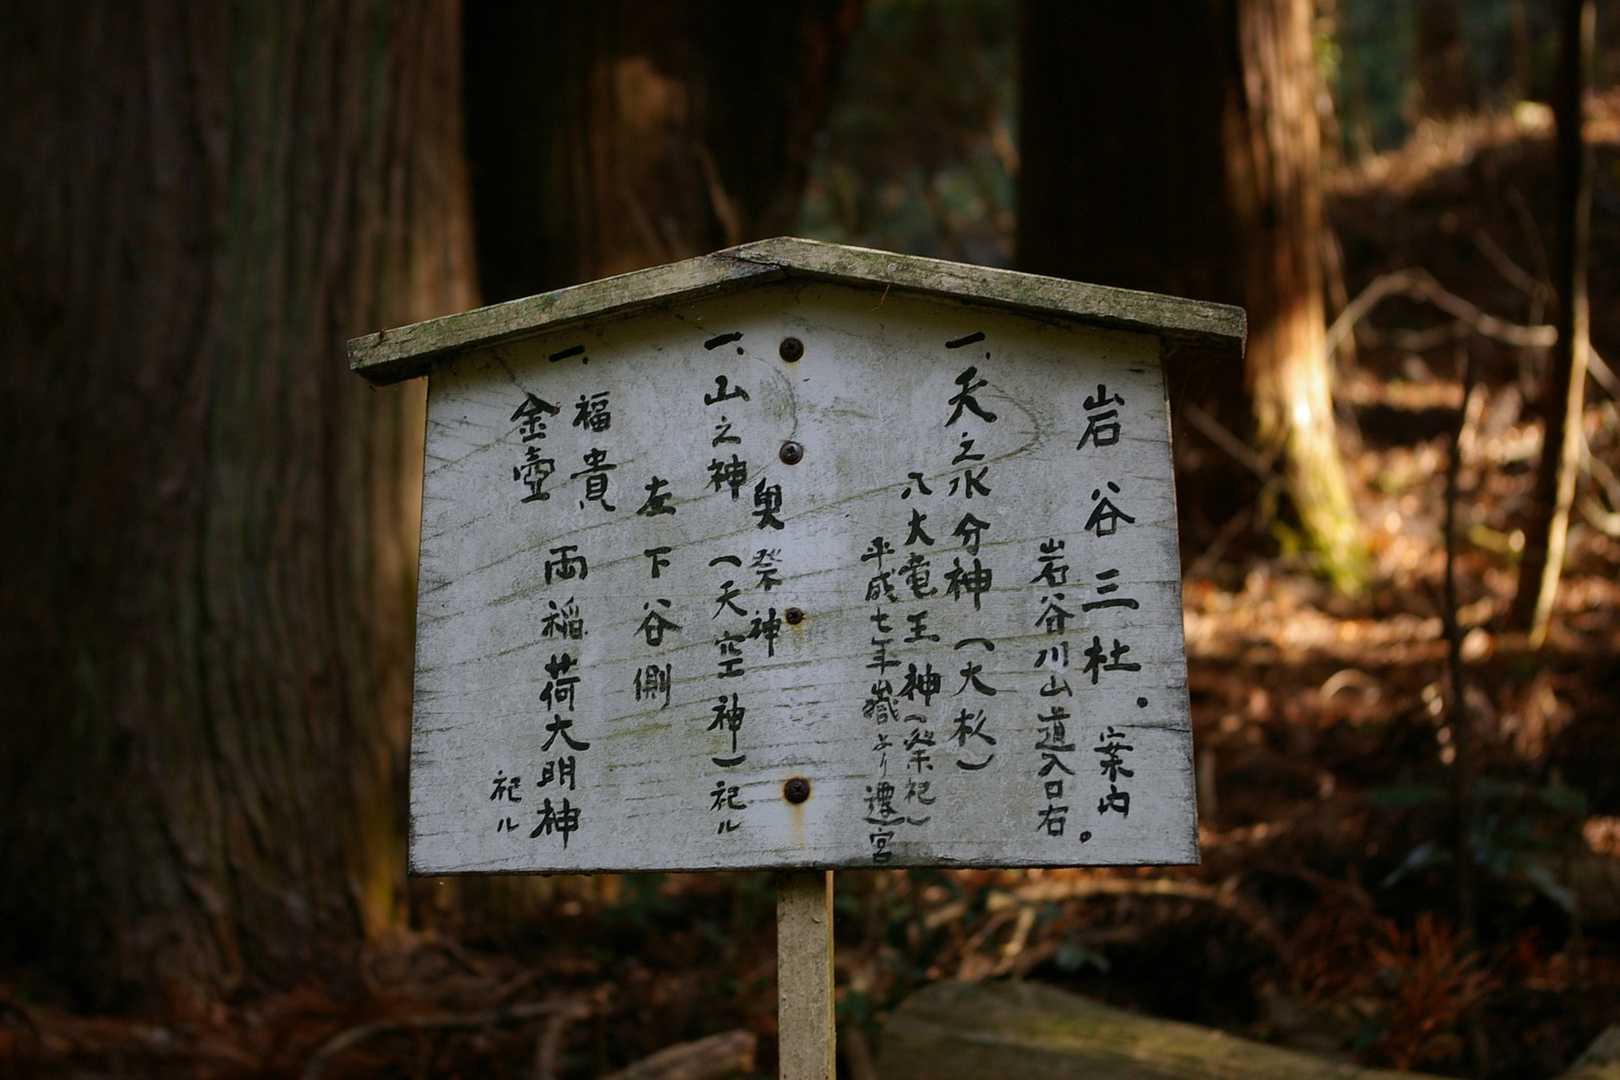 岩谷三社。案内。
岩谷川山道入口右
一、天之水分神（大杉）
八大竜王神（祭祀）
平成七年嶽より遷宮
奥祭神
一、山之神（天空神）祀ル
左下谷側
一、福貴
金壷
両稲荷大明神
祀ル